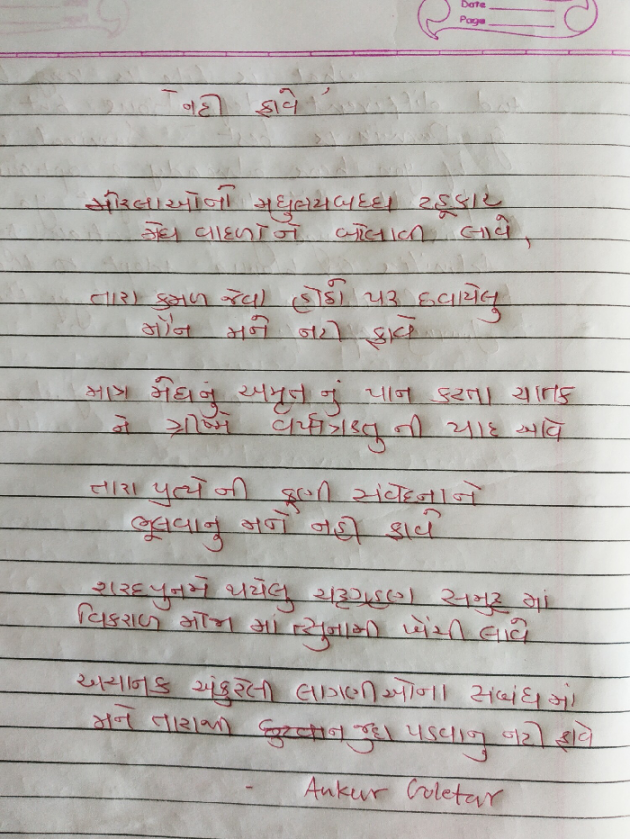 Date
Page
'નહી ફાવે'
મોરલાઓની મધુલયબધ્ધ ટહૂકાર
મેઘ વાદળોને બોલાવી લાવે,
તારા કમળ જેવા હોઠો પર દબાયેલુ
મૌન મને નહી ફાવે
માત્ર મેઘનું અમૃત નું પાન કરતા ચાતક
ને ગ્રીષ્મે વર્ષાઋતુ ની યાદ આવે
તારા પ્રત્યે ની કુણી સંવેદનાને
ભૂલવાનુ મને નહી ફાવે
શરદપુનમે થયેલુ ચંદ્રગ્રહણ સમુદ્ર માં
વિકરાળ મોજા મા ત્સુનામી ખેંચી લાવે
અચાનક અંકુરેલી લાગણીઓના સબંધ માં
મને તારાથી જુદા પડવાનુ નહી ફાવે
- Ankur Coletar